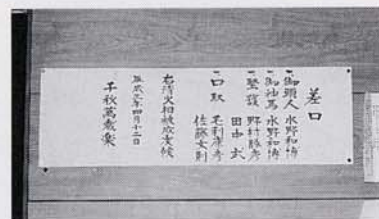 差口
一 御頭人 水野和博
一 御神馬 水野和博
一 警護 野村
田中 武
一 口取 毛利
佐藤
右清火相被成支候
平成 年四月十二日
千秋萬歳楽